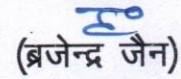 (ब्रजेन्द्र जैन)